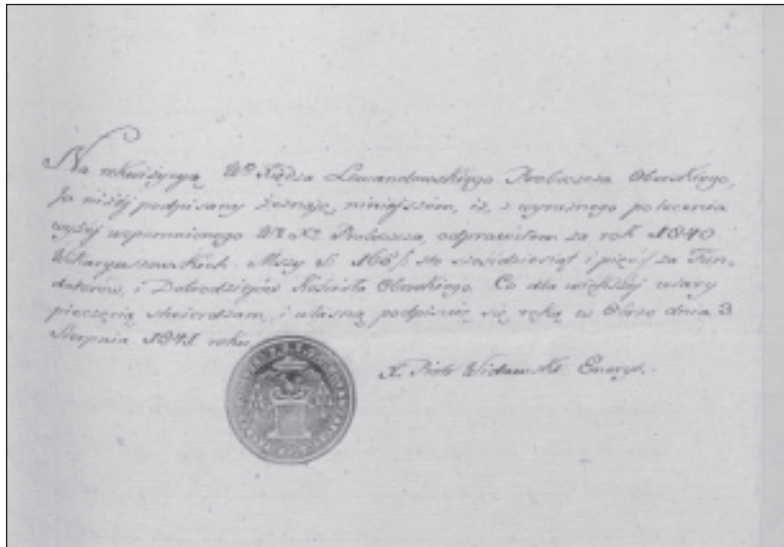 Na rekwizycyą Wo Księdza Lewandowskiego Proboszcza Oberskiego,
ja niżéj podpisany zeznaję niniejszém, iż, z wyraznego polecenia
wyżéj wspomnionego Proboszcza, odprawiłem za rok 1840
Mszy S. 165 sto sześćdziesiąt i pięć za Fun-
datorów, i Dobrodziejów Kościoła Oberskiego. Co dla większéj wiary
pieczęcią stwierdzam, i własną podpisuię się ręką w Obrze dnia 3
Sierpnia 1841 roku
X. Piotr Emeryt.